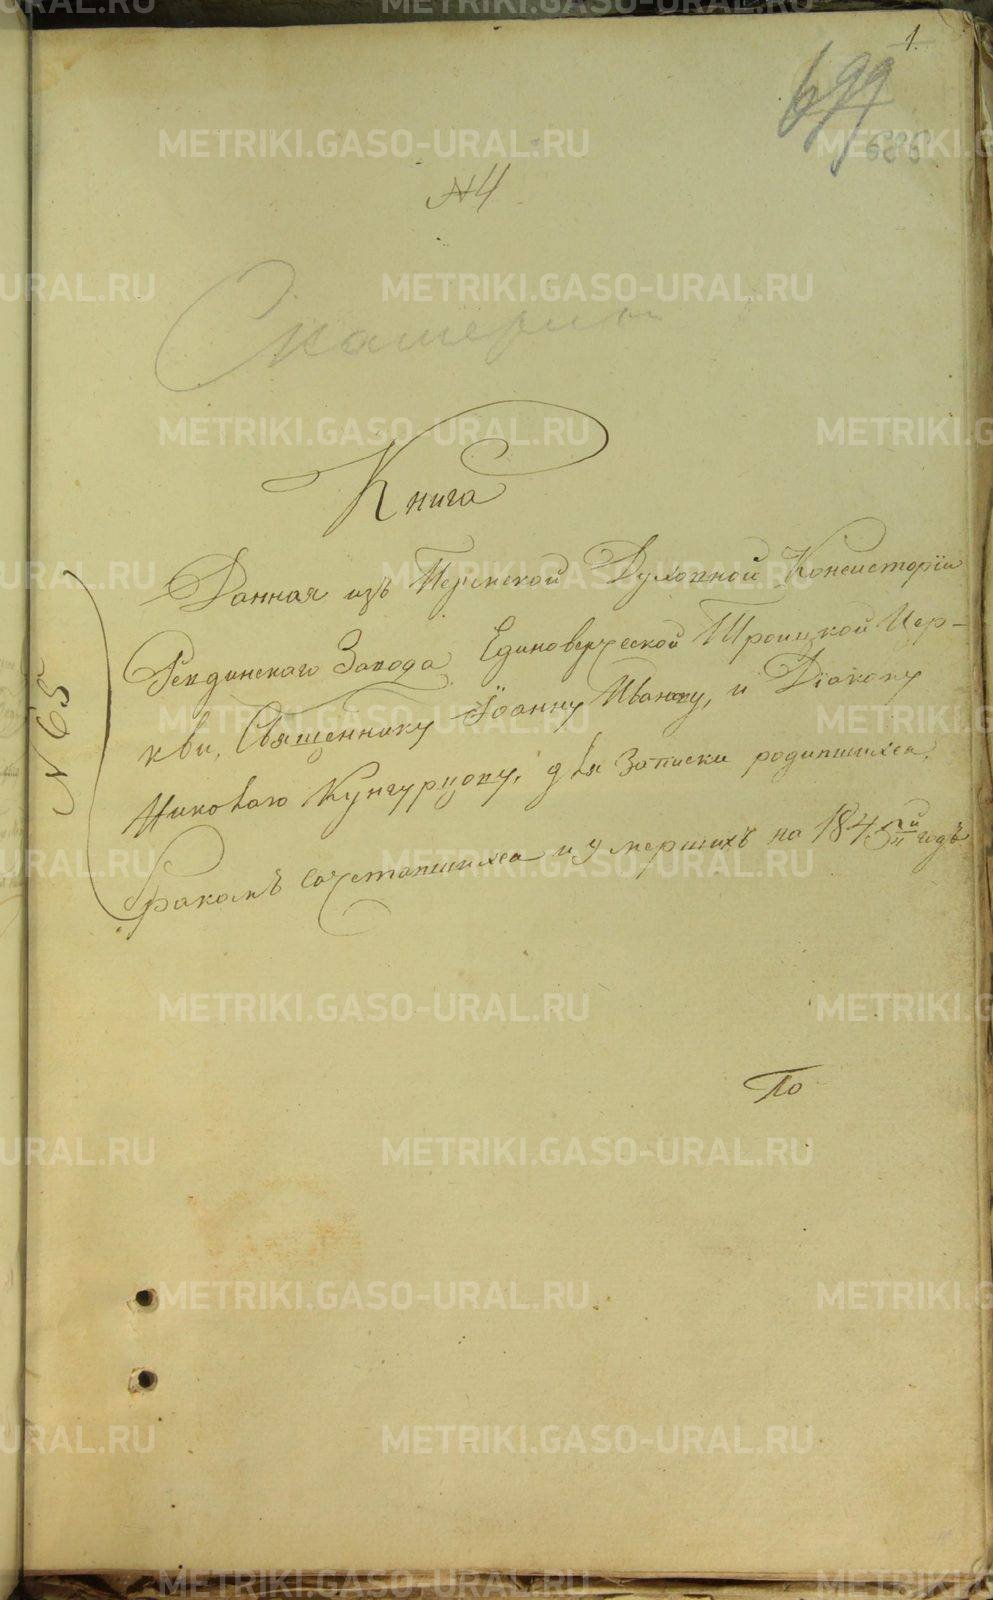 1.
699
686
№ 4
Екатерин
Книга
Данная изъ Пермской Духовной Консисторіи
Ревдинскаго Завода Единоверческой Троицкой Цер-
кви, Священнику Іоанну Иванову, и Діакону
Николаю Кунгурцову, для Записки родившихся,
бракомъ сочетавшихся и умершихъ на 1845й годъ
№ 65
По
METRIKI.GASO-URAL.RU